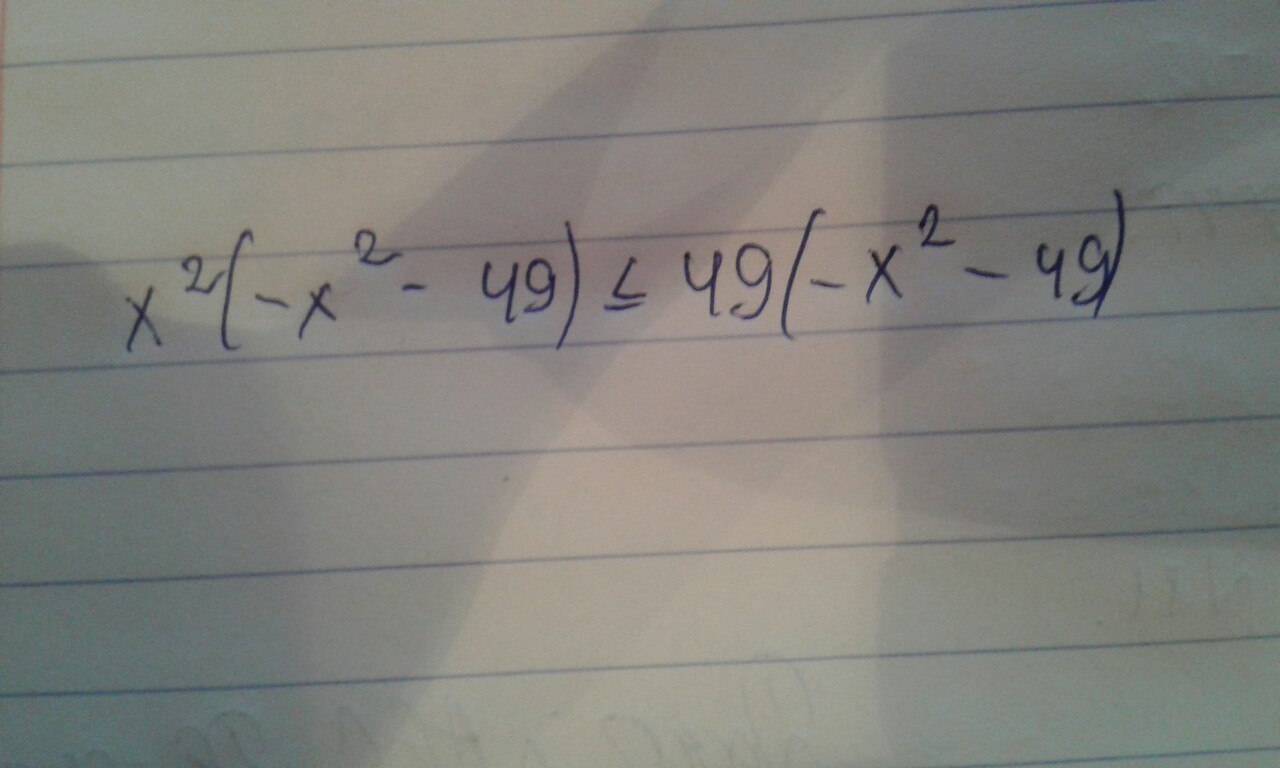 x²(-x² - 49) ≤ 49(-x² - 49)